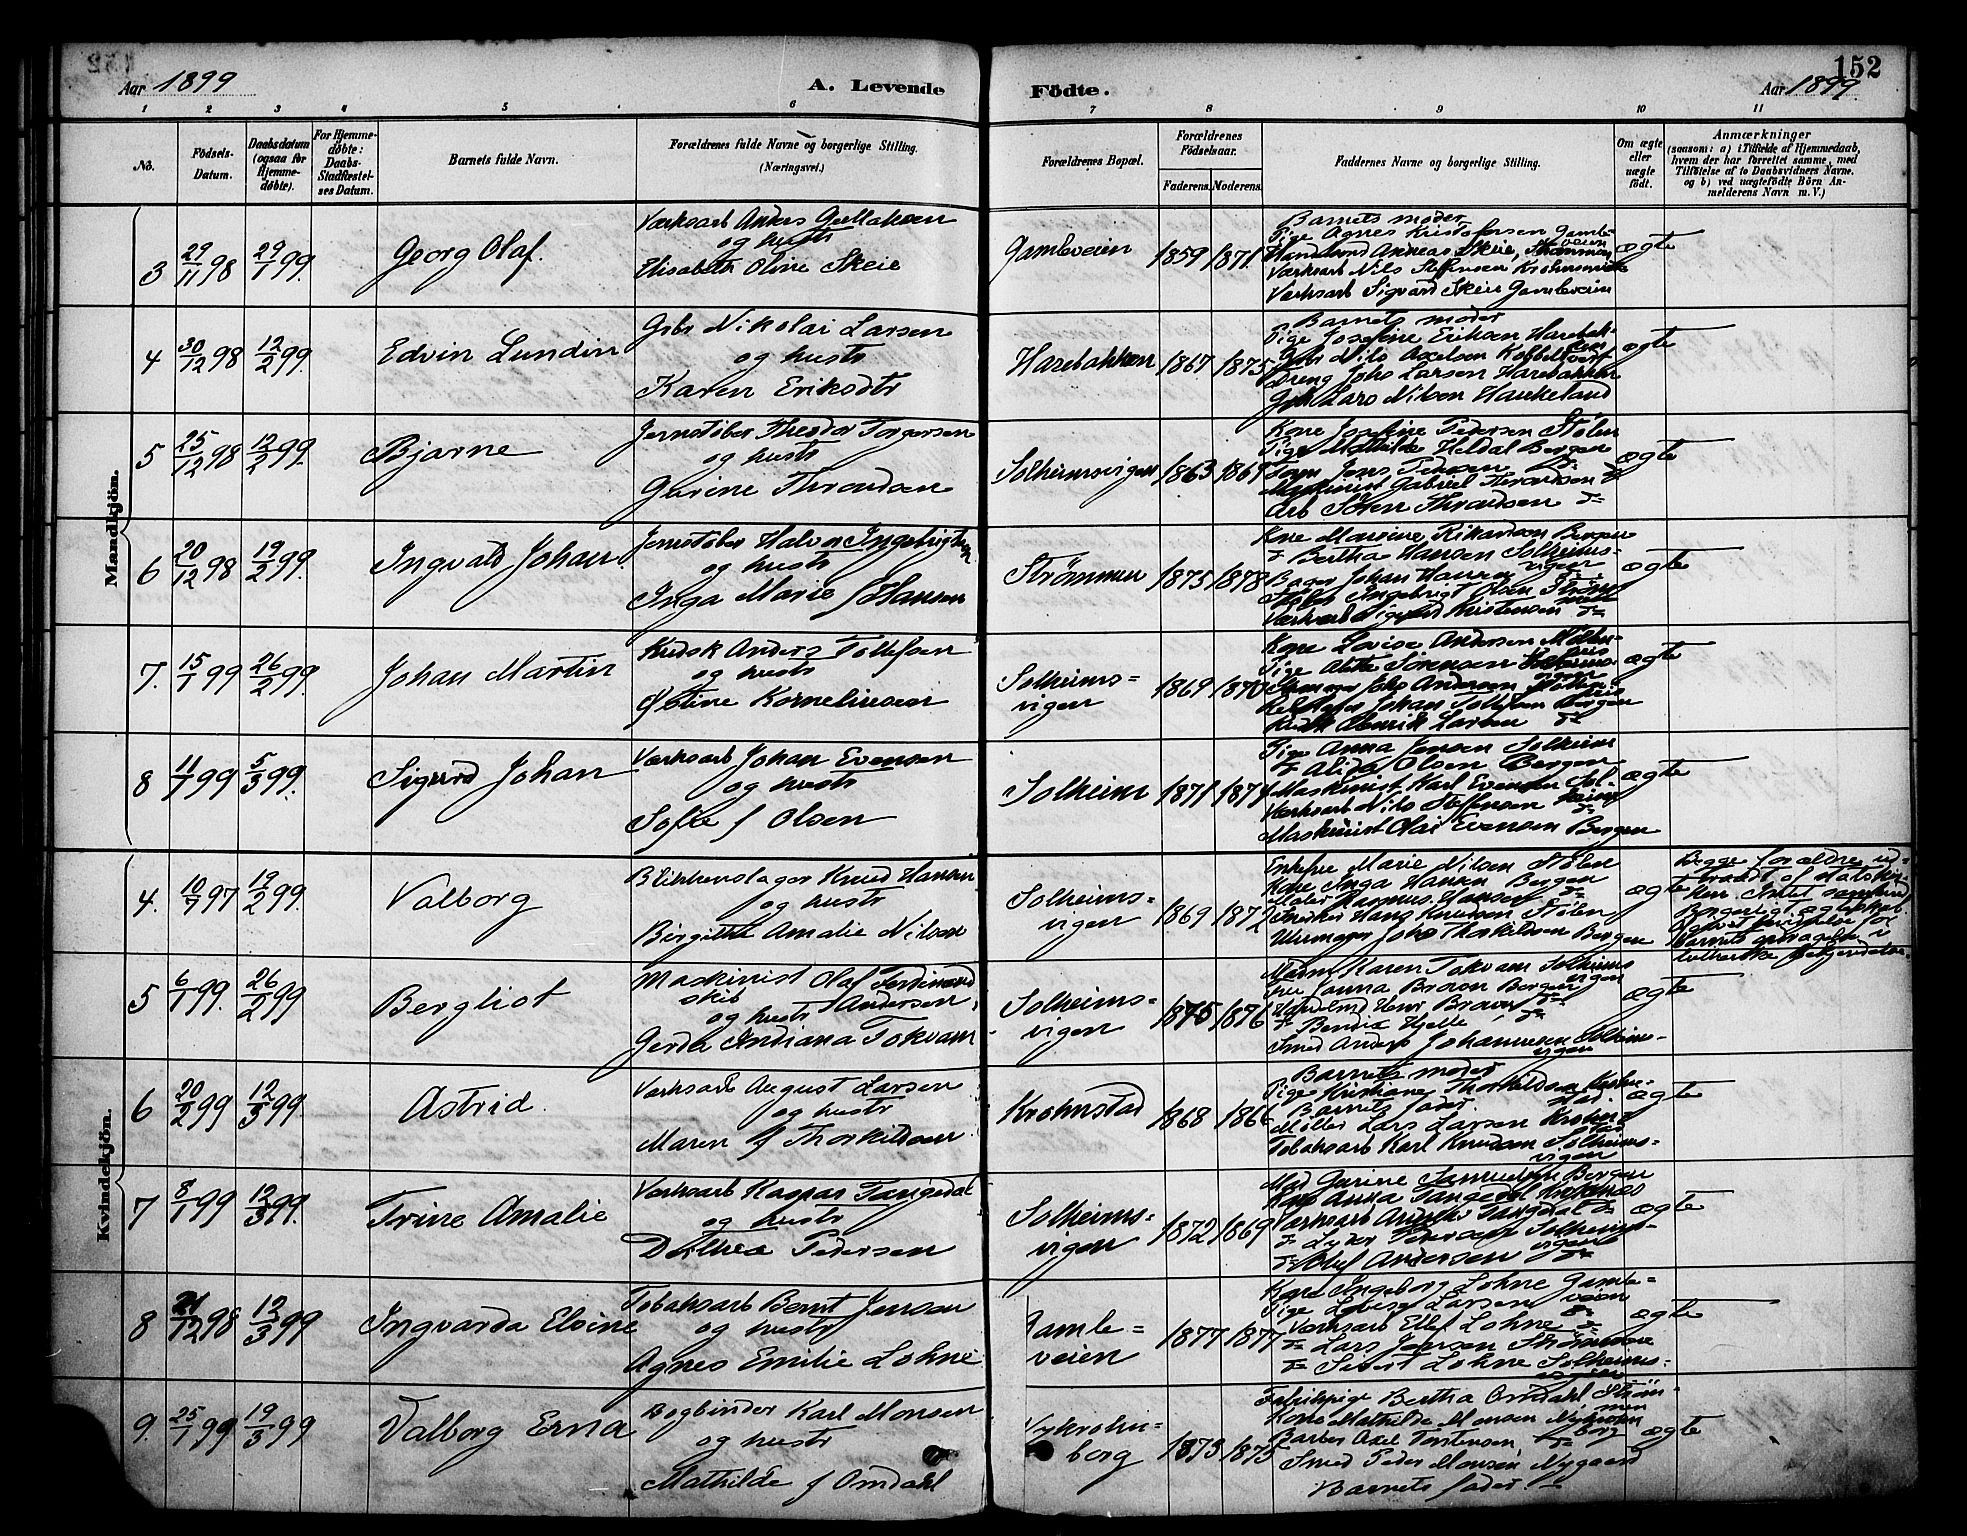 152
Aar 1899
A. Levende Födte.
Aar 1899.
1 2 3 4 5 6 7 8 9 10 11
No.
Födsels-Datum.
Daabsdatum (ogsaa for Hjemme-döbte).
For Hjemme-döbte: Daabs-Stadfæstel-ses Datum.
Barnets fulde Navn.
Forældrenes fulde Navne og borgerlige Stilling. (Næringsvei.)
Forældrenes Bopæl.
Forældrenes Födselsaar.
Faderens. Moderens.
Faddernes Navne og borgerlige Stilling.
Om ægte eller uægte födt.
Anmærkninger
(saasom: a) i Tilfælde af Hjemmedaab, hvem der har forrettet samme, med Tilföielse af to Daabsvidners Navne, og b) ved uægtefödte Börn An-melderens Navn m. V.)
Mandkjön.
3 29/11 98 29/1 99. Georg Olaf.
Værksarb Anders
og hustr
Elisabeth Oline Skeie
Gamleveien 1859 1871
Barnets moder
Pige Agnes Kristofersen Gamle-
veien
Handelsmd Andreas Skeie, Strømmen
Værksarb Nils Steffensen
Værksarb Sigvard Skeie Gamleveien
ægte
4 30/12 98 12/2 99. Edvin Lundin
Gbr Nikolai Larsen
og hustr
Karen Eriksdtr
Harebakken 1867 1875
Barnets moder
Pige Josefine Eriksen Harebak-
ken
Gbr Nils Axelsen
Dreng Johs Larsen Harebakken
Gbr Lars Nilsen Haukeland
ægte
5 25/12 98 12/2 99. Bjarne
Jernstøber Theodor Torgersen
og hustr
Gurine Throndsen
Solheimsvigen 1863 1869
Kone Josefine Pedersen Stølen
Pige Mathilde Heldal Bergen
Jens Pedersen
Maskinist Gabriel Throndsen
Arb Søren Throndsen
ægte
6 20/12 98 19/2 99. Ingvald Johan
Jernstøber Halvor Ingebrigtsen
og hustr
Inga Marie f Hansen
Strømmen 1875 1878
Kone Maurine Rikardsen Bergen
Bertha Hansen Solheims-
vigen
Bager Johan Hansen
Ingebrigt Olsen Strøm-
Værksarb Kristensen
ægte
7. 15/1 99 26/2 99. Johan Martin
Kudsk Anders Tollefsen
og hustr
Østine Korneliussen
Solheims-
vigen
1869 1870
Kone Lovise Andersen
Pige Sørensen
Johs Andersen
Johan Tollefsen Bergen
Kudsk Henrik Larsen
ægte
8 11/1 99 5/3 99. Sigurd Johan
Værksarb Johan Evensen
og hustr
Sofie f Olsen
Solheim 1871 1874
Pige Anna Jensen Solheim
Alida Olsen Bergen
Maskinist Karl Evensen Sol-
heim
Værksarb Nils Steffensen
Maskinist Olai Evensen Bergen
ægte
Kvindekjön.
4. 10/9 97 19/2 99. Valborg
Blikkenslager Knud Hansen
og hustr
Birgitte Amalie Nilsen
Solheims-
vigen
1869 1872
Enkefru Marie Nilsen Stølen
Kone Inga Hansen Bergen
Maler Rasmus Hansen
Snedker Hans Knudsen Stølen
Uhrmager Johs Thorkildsen Bergen
ægte
Begge forældre ud-
traadt af statskir-
ken.
Borgerligt ægteskab.
for
barnets opdragelse i
lutherske bekjendelse.
5 6/1 99. 26/2 99 Bergliot
Maskinist Olaf Ferdinand
Andersen,
og hustr
Gerda Indiana Tokvam
Solheims-
vigen
1875 1876
Madm Karen Tokvam Solheims
vigen
Fru Janna Braun Bergen
Handelsmd Henr Braun
Bendix Hjelle
Smed Anders Johannesen Solheims-
vigen
ægte
6 20/2 99 12/3 99 Astrid.
Værksarb August Larsen
og hustr
Maren f Thorkildsen.
Krohnstad 1868 1866
Barnets moder
Pige Kristiane Thorkildsen Krohn-
stad.
Barnets fader.
Møller Lars Larsen Krohn-
stad
Tobaksarb Karl Knudsen Solheims-
vigen
ægte
7 8/1 99 12/3 99. Trine Amalie
Værksarb Kaspar Tangedal
og hustr
Dorthea Pedersen
Solheims-
vigen
1872 1869
Mad Gurine Samuelsen Bergen
Kone Anna Tangedal
Værksarb Andreas Tangedal
Peder Pedersen Solheims-
vigen
Olaf Andersen
ægte
8 21/12 98 12/3 99 Ingvarda Elvine
Tobaksarb Bernt Jensen
og hustr
Agnes Emilie Lohne
Gamle-
veien
1877 1877
Kone Ingeborg Lohne Gamle-
veien
Pige Lovise Larsen
Værksarb Ellef Lohne
Lars Jensen Strømmen
Sivert Lohne Solheims-
vigen
ægte
9. 25/1 99 19/3 99 Valborg Erna
Bogbinder Karl Monsen
og hustr
Mathilde f Omdahl
Nykrohn-
borg
1873 1875
Fabrikpige Bertha Omdahl Strøm-
men
Kone Mathilde Monsen Nykrohn
borg
Barber Axel Torstensen
Smed Peder Monsen Nygaard
Barnets fader.
ægte